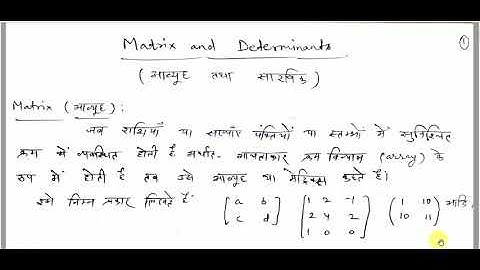 Matrix and Determinants ①
(आव्यूह तथा सारणिक)
Matrix (आव्यूह) :
जब राशियाँ या संख्याएँ पंक्तियों या स्तम्भों में सुनिश्चित
क्रम में व्यवस्थित होती हैं अर्थात- आयताकार क्रम विन्यास (array) के
रूप में होती हैं तब उसे आव्यूह या मैट्रिक्स कहते हैं।
इसे निम्न प्रकार लिखते हैं [a b c d] [1 2 -1 2 4 2 1 0 0] (1 10 10 11) आदि,